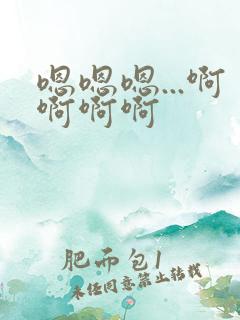 嗯嗯嗯...啊
啊啊啊
肥而包1
未经同意禁止转载